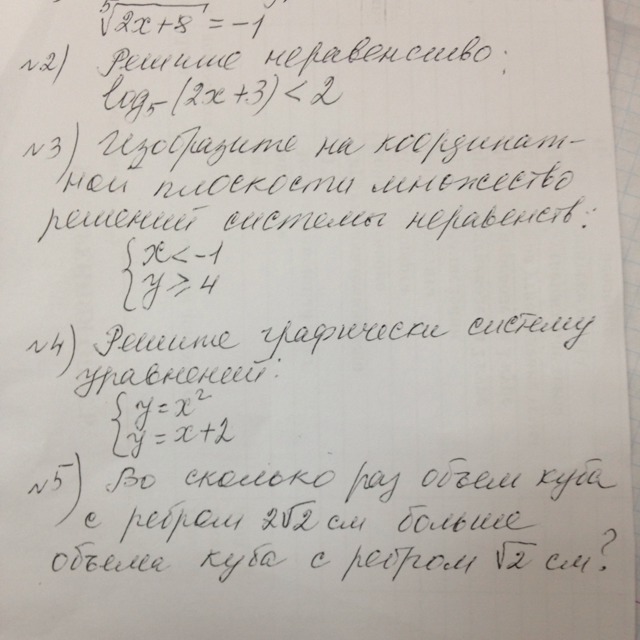 ⁵√2x+8 = -1
№2) Решите неравенство:
log₅(2x+3) < 2
№3) Изобразите на координат-
ной плоскости множество
решений системы неравенств:
{ x < -1
{ y ⩾ 4
№4) Решите графически систему
уравнений:
{ y = x²
{ y = x+2
№5) Во сколько раз объем куба
с ребром 2√2 см больше
объема куба с ребром √2 см?